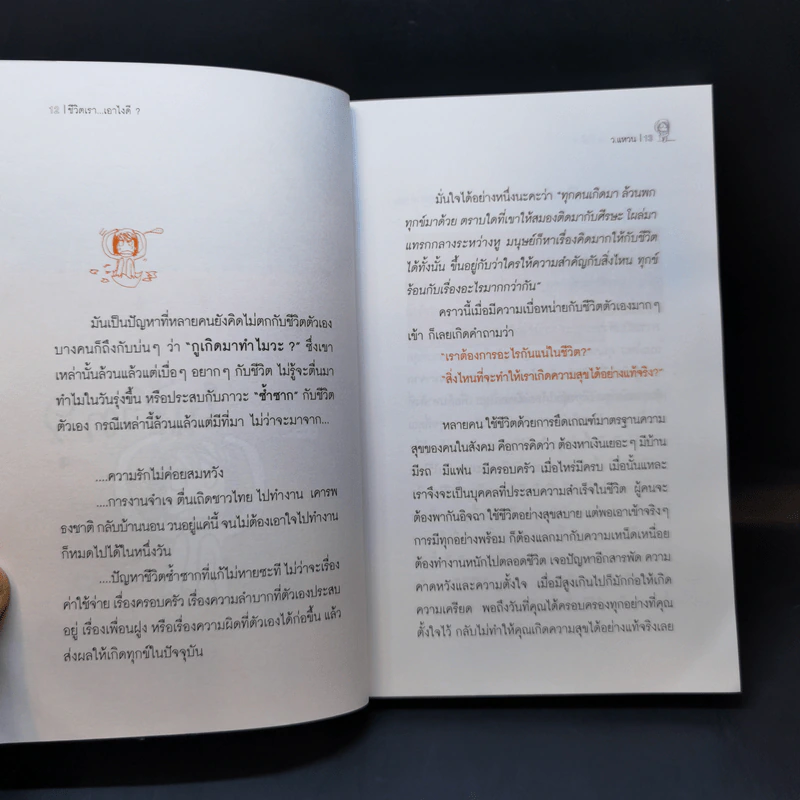 12 | ชีวิตเรา...เอาไงดี ?
มันเป็นปัญหาที่หลายคนยังคิดไม่ตกกับชีวิตตัวเอง
บางคนก็ถึงกับบ่นๆ ว่า “กูเกิดมาทำไมวะ ?” ซึ่งเขา
เหล่านั้นล้วนแล้วแต่เบื่อๆ อยากๆ กับชีวิต ไม่รู้จะตื่นมา
ทำไมในวันรุ่งขึ้น หรือประสบกับภาวะ “ซ้ำซาก” กับชีวิต
ตัวเอง กรณีเหล่านี้ล้วนแล้วแต่มีที่มา ไม่ว่าจะมาจาก...
....ความรักไม่ค่อยสมหวัง
....การงานจำเจ ตื่นเถิดชาวไทย ไปทำงาน เคารพ
ธงชาติ กลับบ้านนอน วนอยู่แค่นี้ จนไม่ต้องเอาใจไปทำงาน
ก็หมดไปได้ในหนึ่งวัน
....ปัญหาชีวิตซ้ำซากที่แก้ไม่หายซะที ไม่ว่าจะเรื่อง
ค่าใช้จ่าย เรื่องครอบครัว เรื่องความลำบากที่ตัวเองประสบ
อยู่ เรื่องเพื่อนฝูง หรือเรื่องความผิดที่ตัวเองได้ก่อขึ้น แล้ว
ส่งผลให้เกิดทุกข์ในปัจจุบัน
ว.แหวน | 13
มั่นใจได้อย่างหนึ่งนะคะว่า “ทุกคนเกิดมา ล้วนพก
ทุกข์มาด้วย ตราบใดที่เขาให้สมองติดมากับศีรษะ โผล่มา
แทรกกลางระหว่างหู มนุษย์ก็หาเรื่องคิดมากให้กับชีวิต
ได้ทั้งนั้น ขึ้นอยู่กับว่าใครให้ความสำคัญกับสิ่งไหน ทุกข์
ร้อนกับเรื่องอะไรมากกว่ากัน”
คราวนี้เมื่อมีความเบื่อหน่ายกับชีวิตตัวเองมากๆ
เข้า ก็เลยเกิดคำถามว่า
“เราต้องการอะไรกันแน่ในชีวิต?”
“สิ่งไหนที่จะทำให้เราเกิดความสุขได้อย่างแท้จริง?”
หลายคน ใช้ชีวิตด้วยการยึดเกณฑ์มาตรฐานความ
สุขของคนในสังคม คือการคิดว่า ต้องหาเงินเยอะๆ มีบ้าน
มีรถ มีแฟน มีครอบครัว เมื่อไหร่มีครบ เมื่อนั้นแหละ
เราจึงจะเป็นบุคคลที่ประสบความสำเร็จในชีวิต ผู้คนจะ
ต้องพากันอิจฉา ใช้ชีวิตอย่างสุขสบาย แต่พอเอาเข้าจริงๆ
การมีทุกอย่างพร้อม ก็ต้องแลกมากับความเหน็ดเหนื่อย
ต้องทำงานหนักไปตลอดชีวิต เจอปัญหาอีกสารพัด ความ
คาดหวังและความตั้งใจ เมื่อมีสูงเกินไปก็มักก่อให้เกิด
ความเครียด พอถึงวันที่คุณได้ครอบครองทุกอย่างที่คุณ
ตั้งใจไว้ กลับไม่ทำให้คุณเกิดความสุขได้อย่างแท้จริงเลย